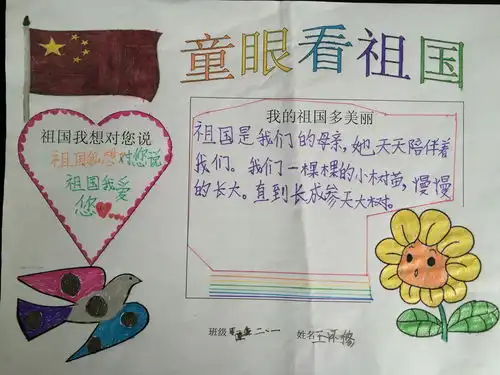 童眼看祖国
祖国我想对您说
祖国我想对您说
祖国我爱
您
我的祖国多美丽
祖国是我们的母亲，她天天陪伴着
我们。我们一棵棵的小树苗，慢慢
的长大。直到长成参天大树。
班级 二.一
姓名 王怀